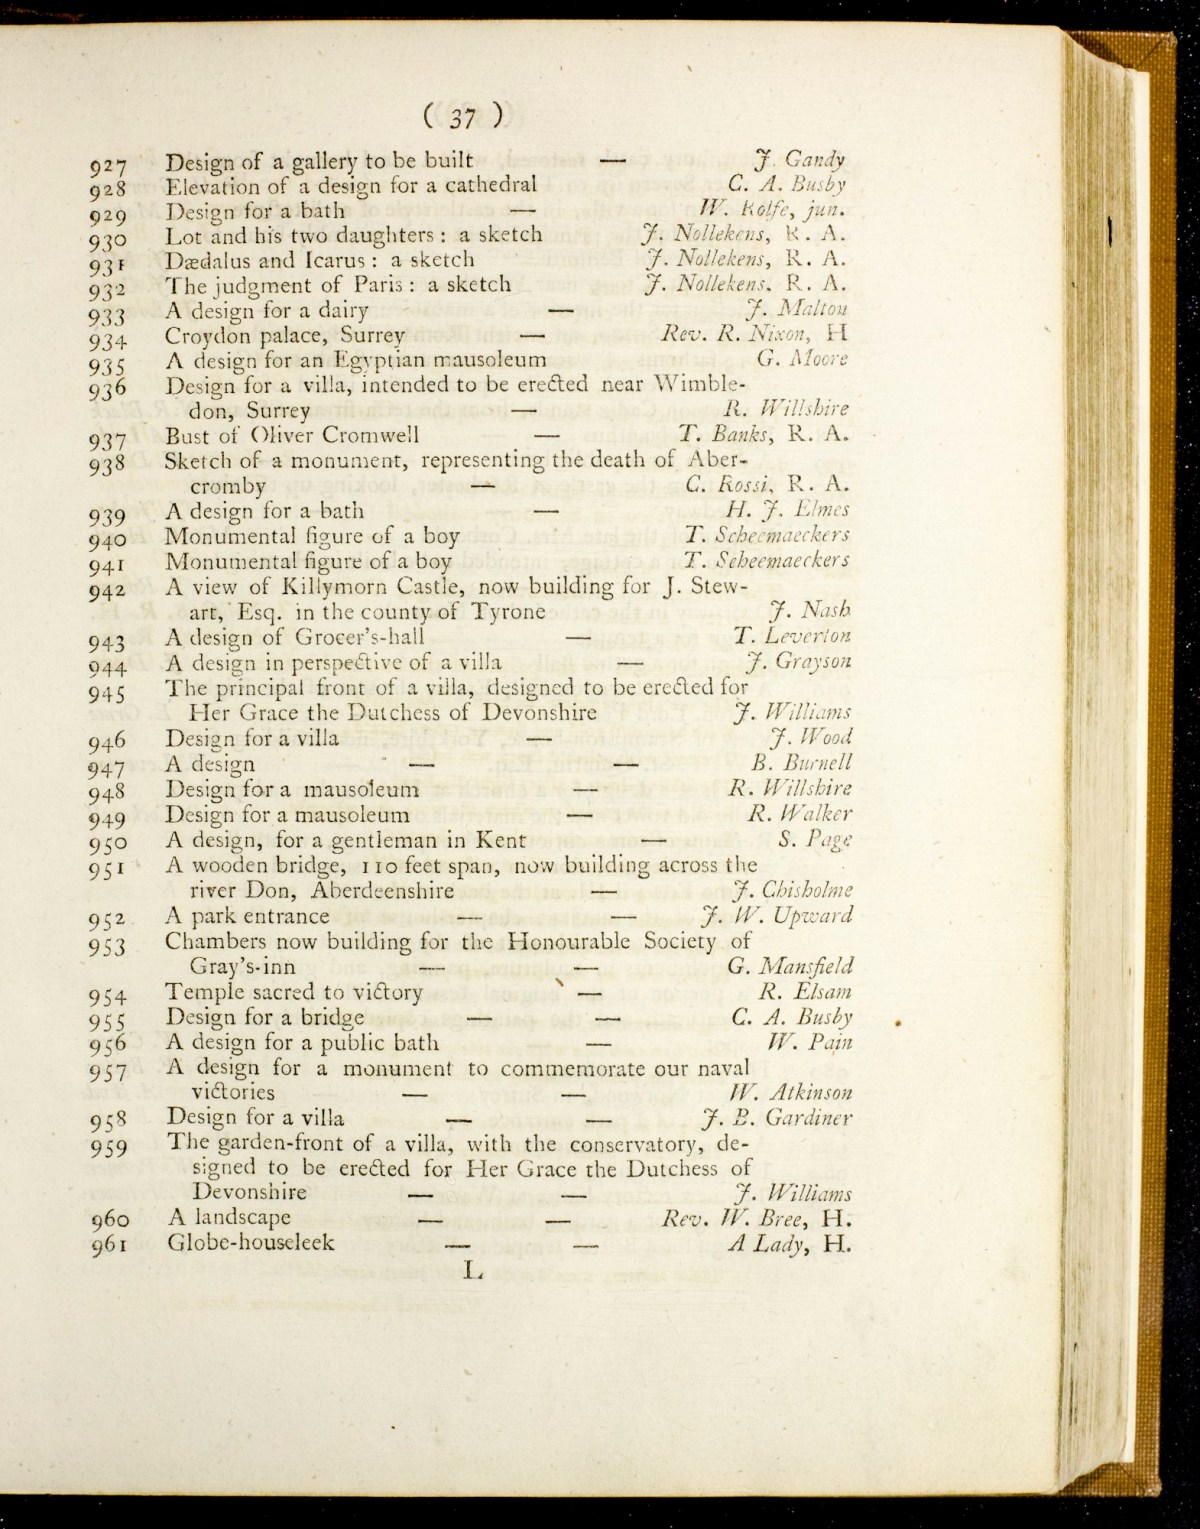 ( 37 )
927 Design of a gallery to be built — J. Gandy
928 Elevation of a design for a cathedral C. A. Busby
929 Design for a bath — W. Rolfe, jun.
930 Lot and his two daughters : a sketch J. Nollekens, R. A.
931 Dædalus and Icarus : a sketch J. Nollekens, R. A.
932 The judgment of Paris : a sketch J. Nollekens. R. A.
933 A design for a dairy — J. Malton
934 Croydon palace, Surrey — Rev. R. Nixon, H
935 A design for an Egyptian mausoleum G. Moore
936 Design for a villa, intended to be erected near Wimble-
don, Surrey — R. Willshire
937 Bust of Oliver Cromwell — T. Banks, R. A.
938 Sketch of a monument, representing the death of Aber-
cromby — C. Rossi, R. A.
939 A design for a bath — H. J. Elmes
940 Monumental figure of a boy T. Scheemaeckers
941 Monumental figure of a boy T. Scheemaeckers
942 A view of Killymorn Castle, now building for J. Stew-
art, Esq. in the county of Tyrone J. Nash
943 A design of Grocer's-hall — T. Leverton
944 A design in perspective of a villa — J. Grayson
945 The principal front of a villa, designed to be erected for
Her Grace the Dutchess of Devonshire J. Williams
946 Design for a villa — J. Wood
947 A design — — B. Burnell
948 Design for a mausoleum — R. Willshire
949 Design for a mausoleum — R. Walker
950 A design, for a gentleman in Kent — S. Page
951 A wooden bridge, 110 feet span, now building across the
river Don, Aberdeenshire — J. Chisholme
952 A park entrance — — J. W. Upward
953 Chambers now building for the Honourable Society of
Gray's-inn — — G. Mansfield
954 Temple sacred to victory — R. Elsam
955 Design for a bridge — — C. A. Busby
956 A design for a public bath — W. Pain
957 A design for a monument to commemorate our naval
victories — — W. Atkinson
958 Design for a villa — — J. B. Gardiner
959 The garden-front of a villa, with the conservatory, de-
signed to be erected for Her Grace the Dutchess of
Devonshire — — J. Williams
960 A landscape — — Rev. W. Bree, H.
961 Globe-houseleek — — A Lady, H.
L